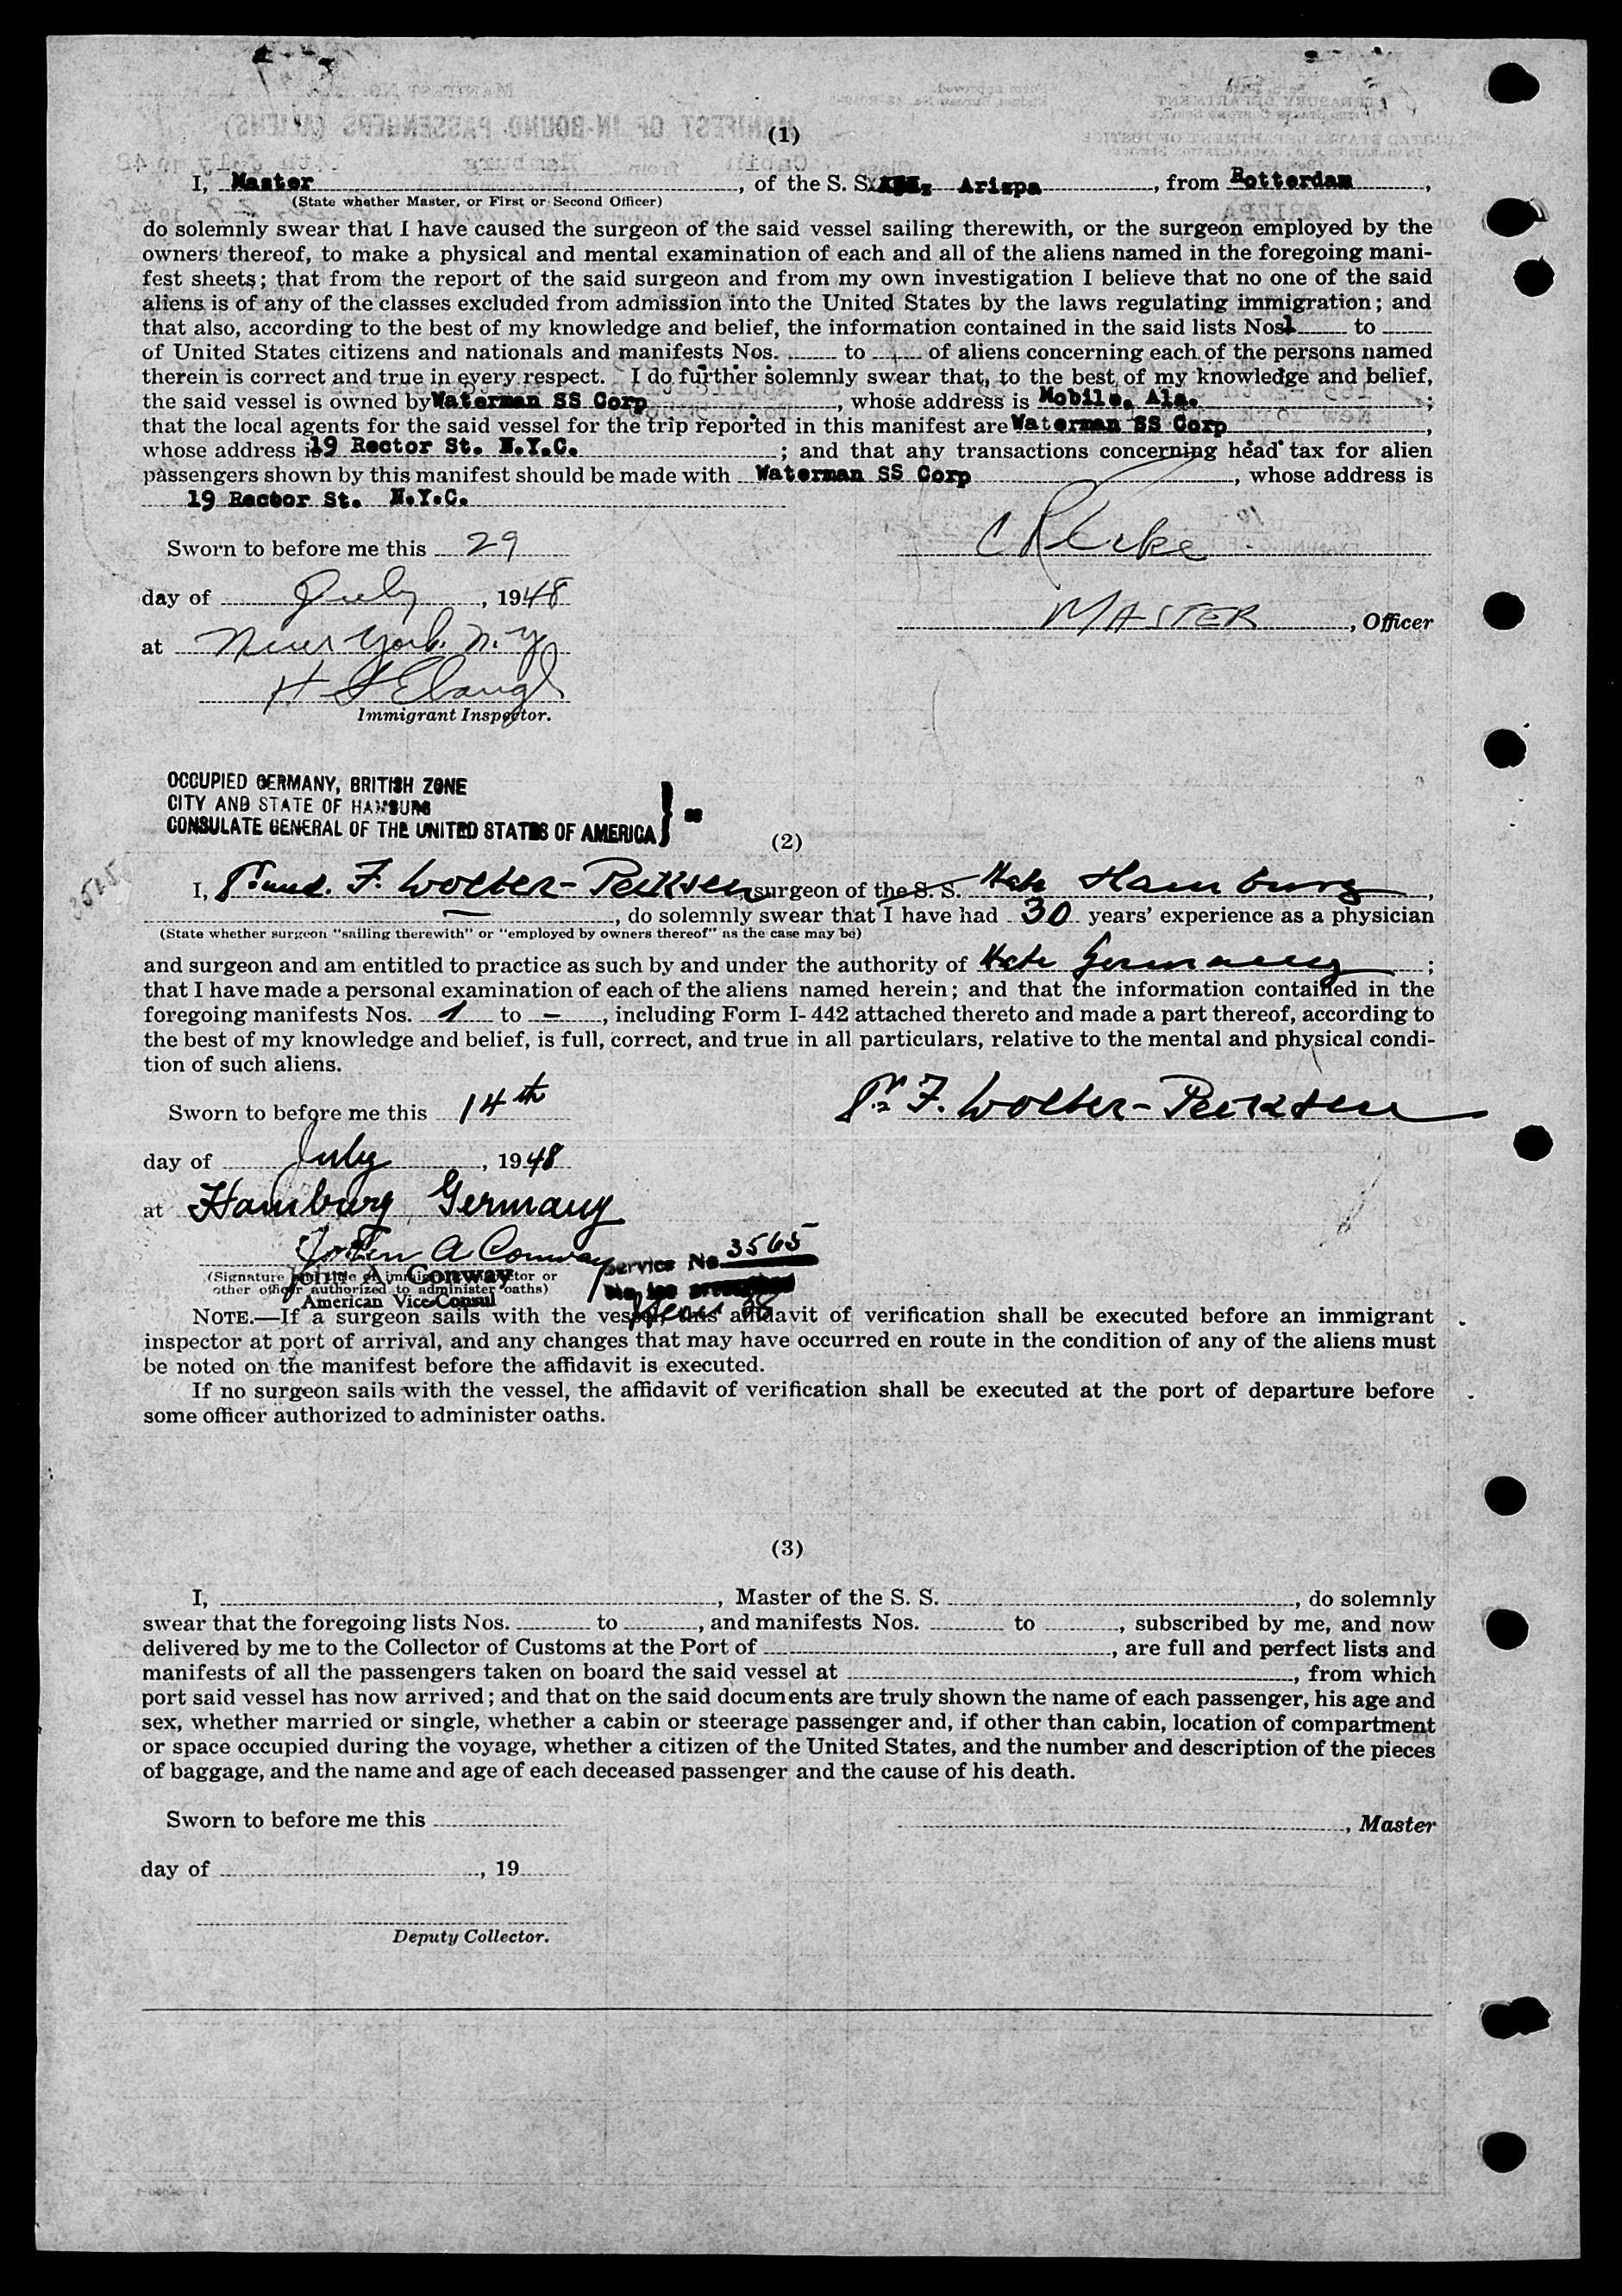 (1)
I, Master, of the S. S. Arizpa, from Rotterdam,
(State whether Master, or First or Second Officer)
do solemnly swear that I have caused the surgeon of the said vessel sailing therewith, or the surgeon employed by the
owners thereof, to make a physical and mental examination of each and all of the aliens named in the foregoing mani-
fest sheets; that from the report of the said surgeon and from my own investigation I believe that no one of the said
aliens is of any of the classes excluded from admission into the United States by the laws regulating immigration; and
that also, according to the best of my knowledge and belief, the information contained in the said lists Nos. 1 to
of United States citizens and nationals and manifests Nos. to of aliens concerning each of the persons named
therein is correct and true in every respect. I do further solemnly swear that, to the best of my knowledge and belief,
the said vessel is owned by Waterman SS Corp, whose address is Mobile, Ala.;
that the local agents for the said vessel for the trip reported in this manifest are Waterman SS Corp,
whose address is 19 Rector St. N.Y.C.; and that any transactions concerning head tax for alien
passengers shown by this manifest should be made with Waterman SS Corp, whose address is
19 Rector St. N.Y.C.
Sworn to before me this 29
day of July, 1948
MASTER, Officer
at New York, N.Y.
Immigrant Inspector.
OCCUPIED GERMANY, BRITISH ZONE
CITY AND STATE OF HAMBURG
CONSULATE GENERAL OF THE UNITED STATES OF AMERICA } ss
(2)
I, F. Wolter-Pecksen, surgeon of the S. S. Hamburg,
, do solemnly swear that I have had 30 years' experience as a physician
(State whether surgeon "sailing therewith" or "employed by owners thereof" as the case may be)
and surgeon and am entitled to practice as such by and under the authority of Germany;
that I have made a personal examination of each of the aliens named herein; and that the information contained in the
foregoing manifests Nos. 1 to -, including Form I-442 attached thereto and made a part thereof, according to
the best of my knowledge and belief, is full, correct, and true in all particulars, relative to the mental and physical condi-
tion of such aliens.
Sworn to before me this 14th
Dr. F. Wolter-Pecksen
day of July, 1948
at Hamburg, Germany
John A Conway
Service No. 3565
(Signature and title of immigrant inspector or
other officer authorized to administer oaths)
John A. Conway
American Vice Consul
NOTE.—If a surgeon sails with the vessel, this affidavit of verification shall be executed before an immigrant
inspector at port of arrival, and any changes that may have occurred en route in the condition of any of the aliens must
be noted on the manifest before the affidavit is executed.
If no surgeon sails with the vessel, the affidavit of verification shall be executed at the port of departure before
some officer authorized to administer oaths.
(3)
I, , Master of the S. S. , do solemnly
swear that the foregoing lists Nos. to , and manifests Nos. to , subscribed by me, and now
delivered by me to the Collector of Customs at the Port of , are full and perfect lists and
manifests of all the passengers taken on board the said vessel at , from which
port said vessel has now arrived; and that on the said documents are truly shown the name of each passenger, his age and
sex, whether married or single, whether a cabin or steerage passenger and, if other than cabin, location of compartment
or space occupied during the voyage, whether a citizen of the United States, and the number and description of the pieces
of baggage, and the name and age of each deceased passenger and the cause of his death.
Sworn to before me this
, Master
day of , 19
Deputy Collector.